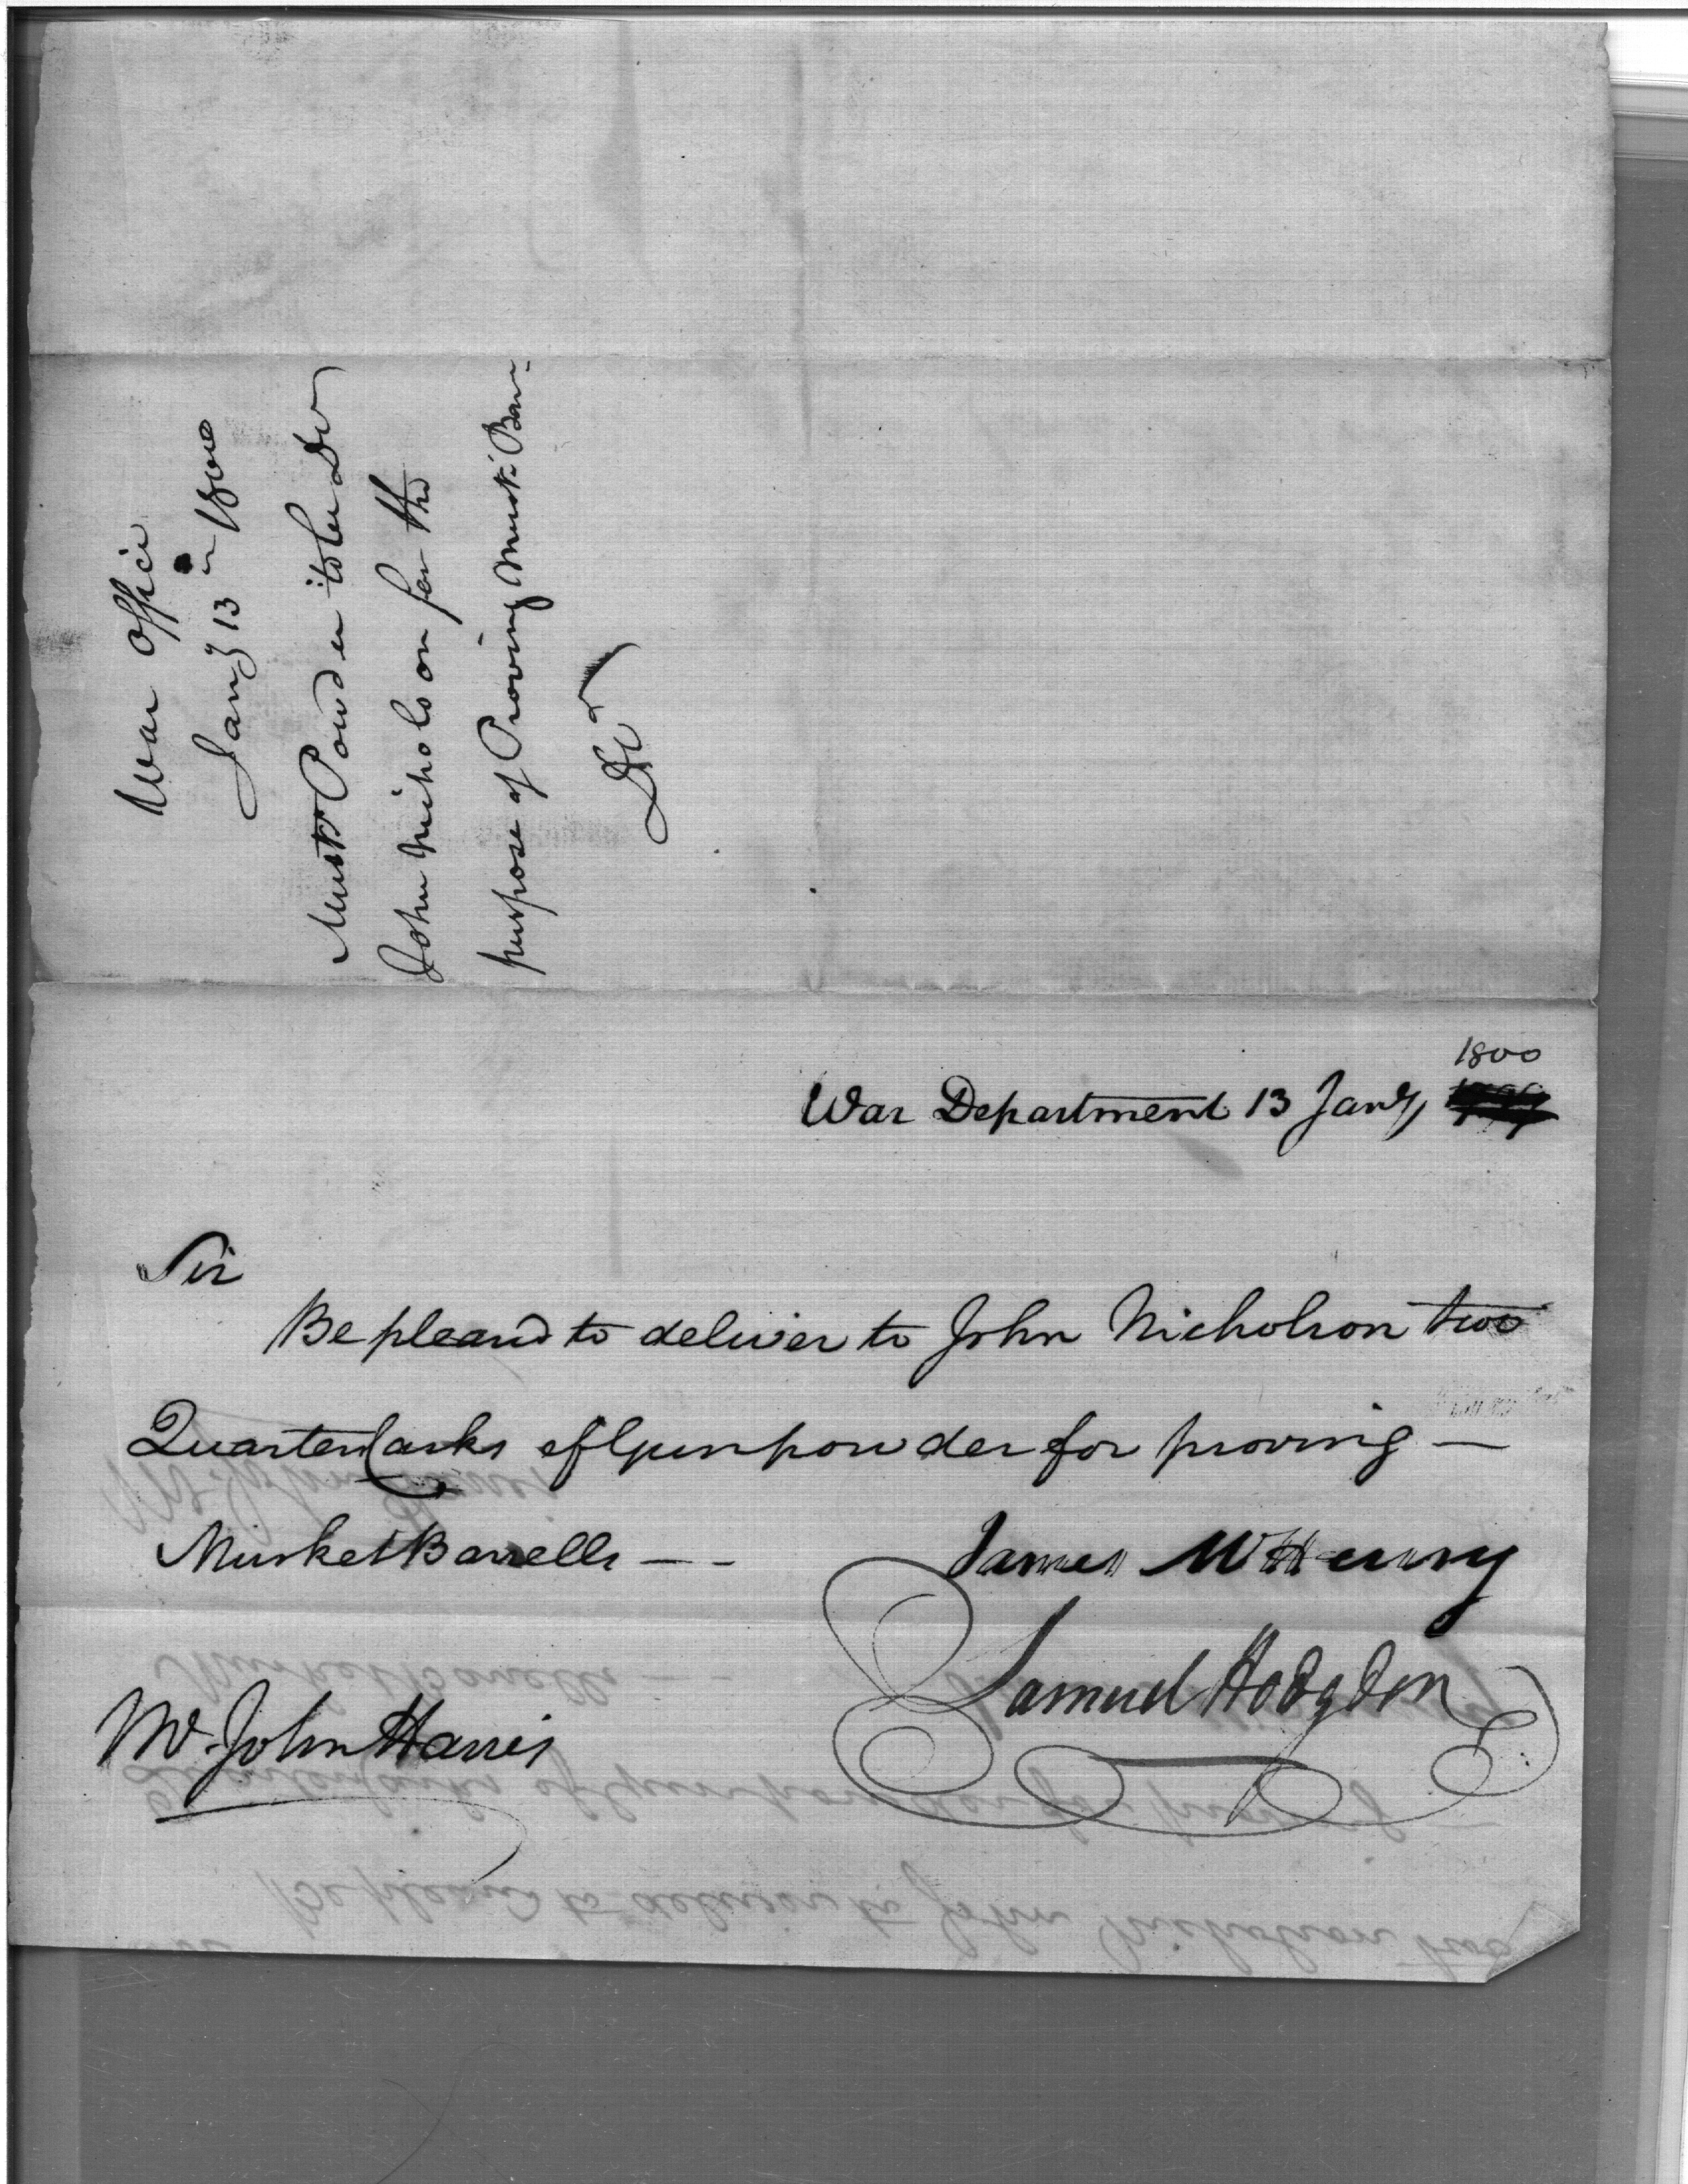 War Office
Jany 13th 1800
Muskt Powder to be Dd
John Nicholson for the
purpose of Proving Muskt Bar-
Dd
War Department 13 Jany 1800
Sir
Be pleasd to deliver to John Nicholson two
Quarter Casks of Gunpowder for proving —
Musket Barrells — –
James McHenry
Samuel Hodgdon
Mr. John Harris